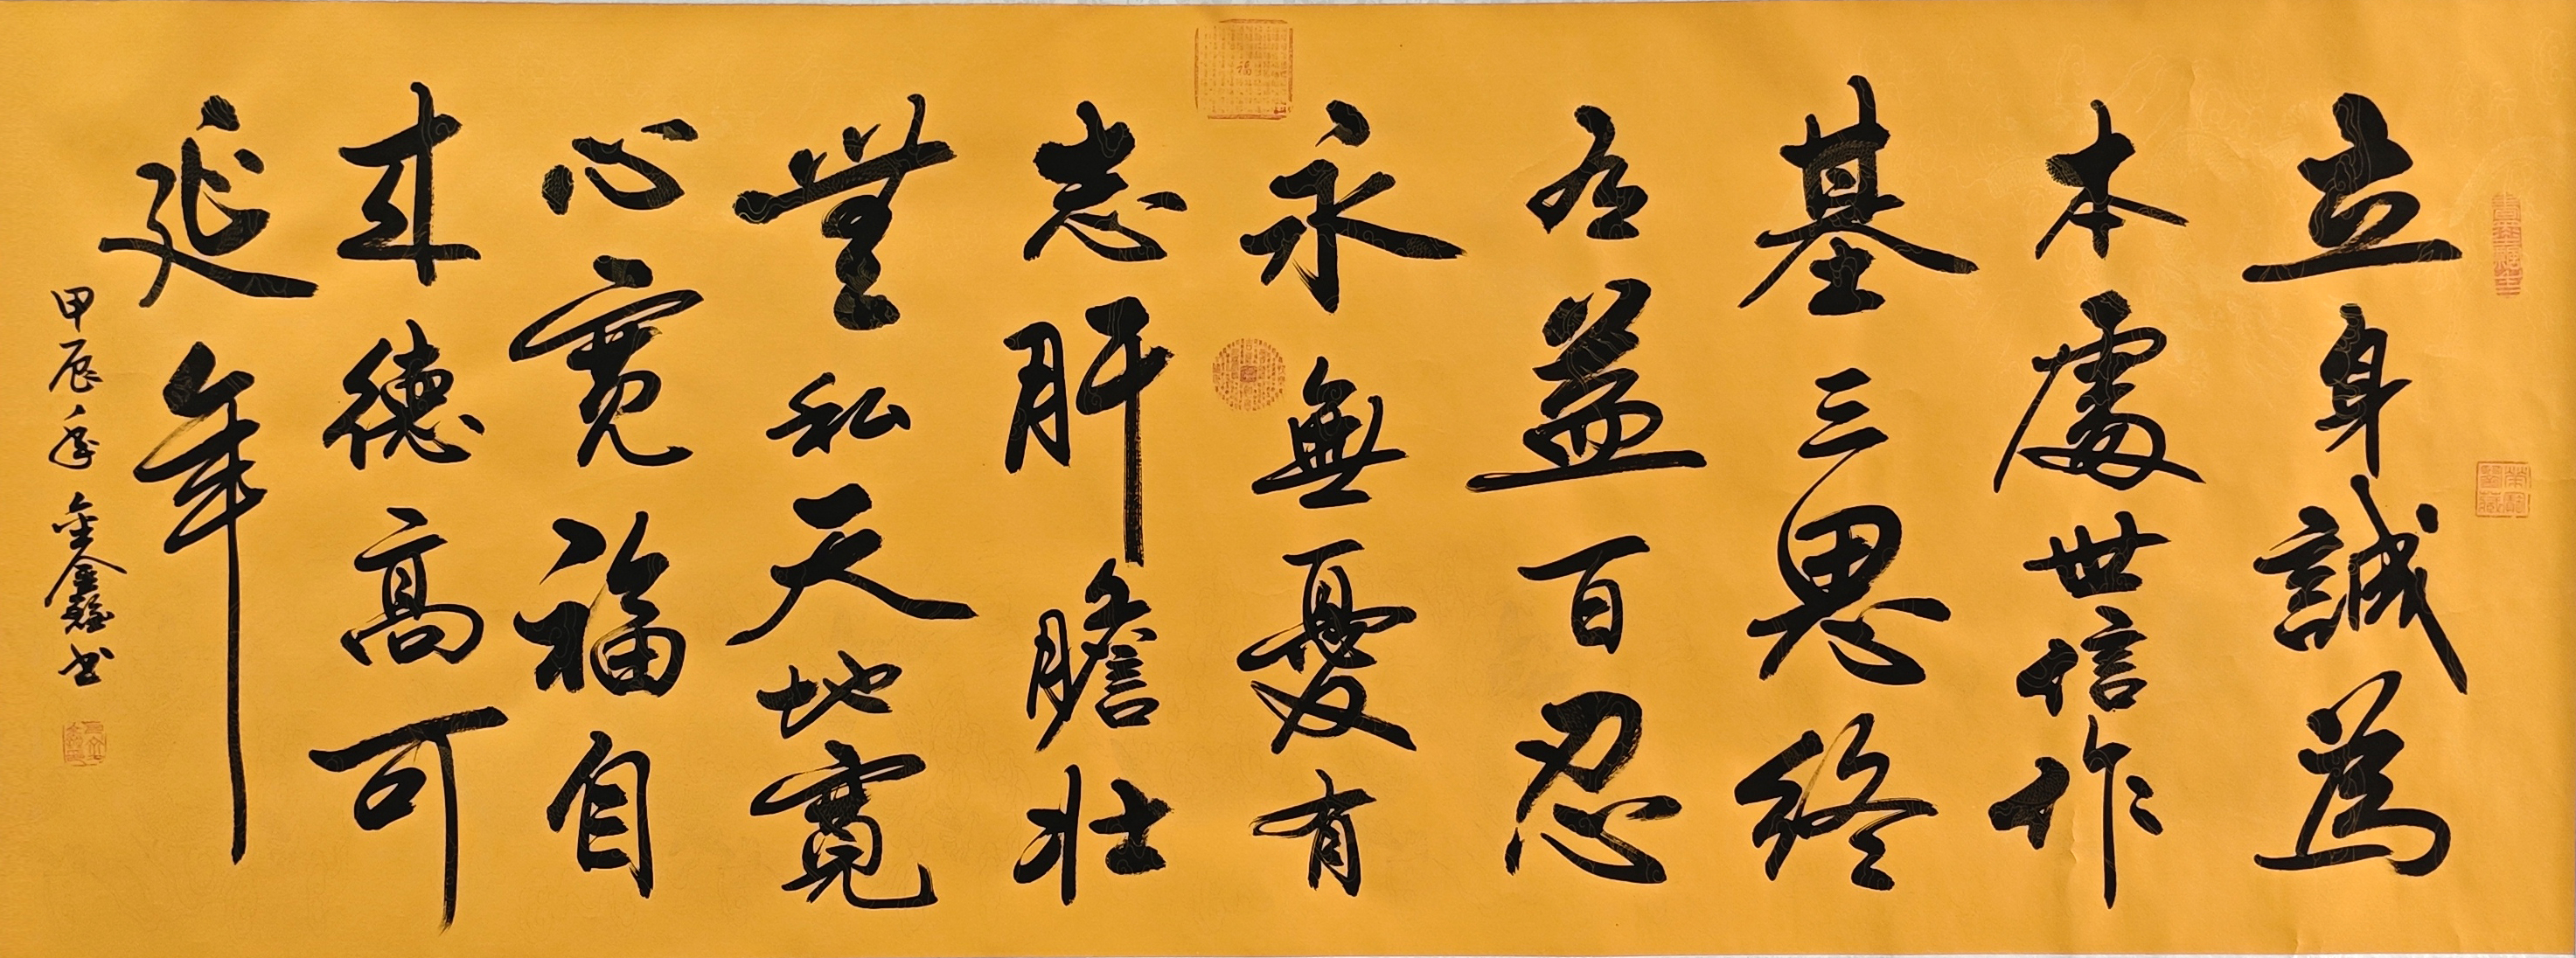 立身誠為
本處世信作
基三思終
有益百忍
永無憂有
志肝膽壯
無私天地寬
心寬福自
來德高可
延年
甲辰年金鑫书
福